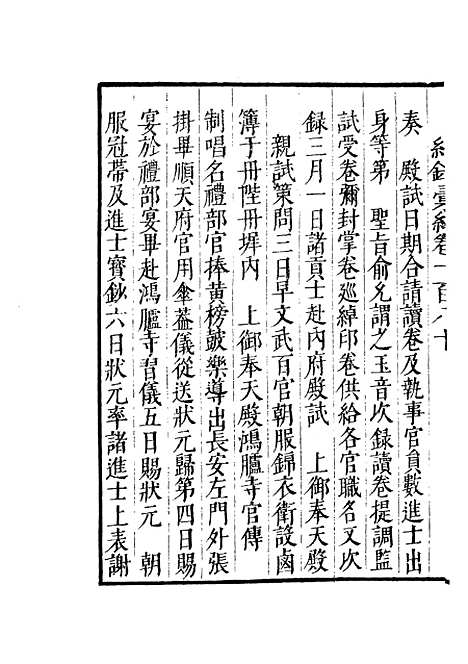 紀錄彙編卷一百八十
奏　殿試日期合請讀卷及執事官員數進士出
身等第　聖旨俞允謂之玉音次錄讀卷提調監
試受卷彌封掌卷巡綽印卷供給各官職名又次
錄三月一日諸貢士赴內府殿試　上御奉天殿
親試策問三日早文武百官朝服錦衣衛設鹵
簿于丹陛丹墀內　上御奉天殿鴻臚寺官傳
制唱名禮部官捧黃榜鼓樂導出長安左門外張
掛畢順天府官用傘蓋儀從送狀元歸第四日賜
宴於禮部宴畢赴鴻臚寺習儀五日賜狀元　朝
服冠帶及進士寶鈔六日狀元率諸進士上表謝